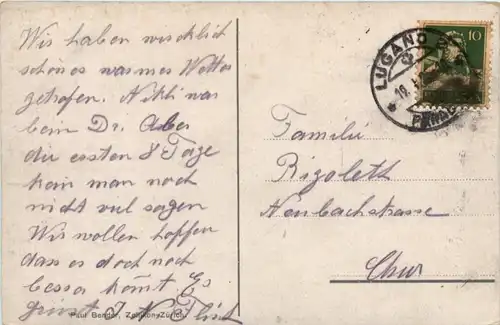 Wir haben wirklich
schönes warmes Wetter
getrofen. Nikli war
beim Dr. Aber
die ersten 8 Tage
kan man noch
nicht viel sagen
Wir wollen hoffen
dass es doch noch
besser kömt Es
Paul Bender, Zollikon-Zürich
LUGANO
10
Familie
Rigoleth
Neubachstrasse
Chur